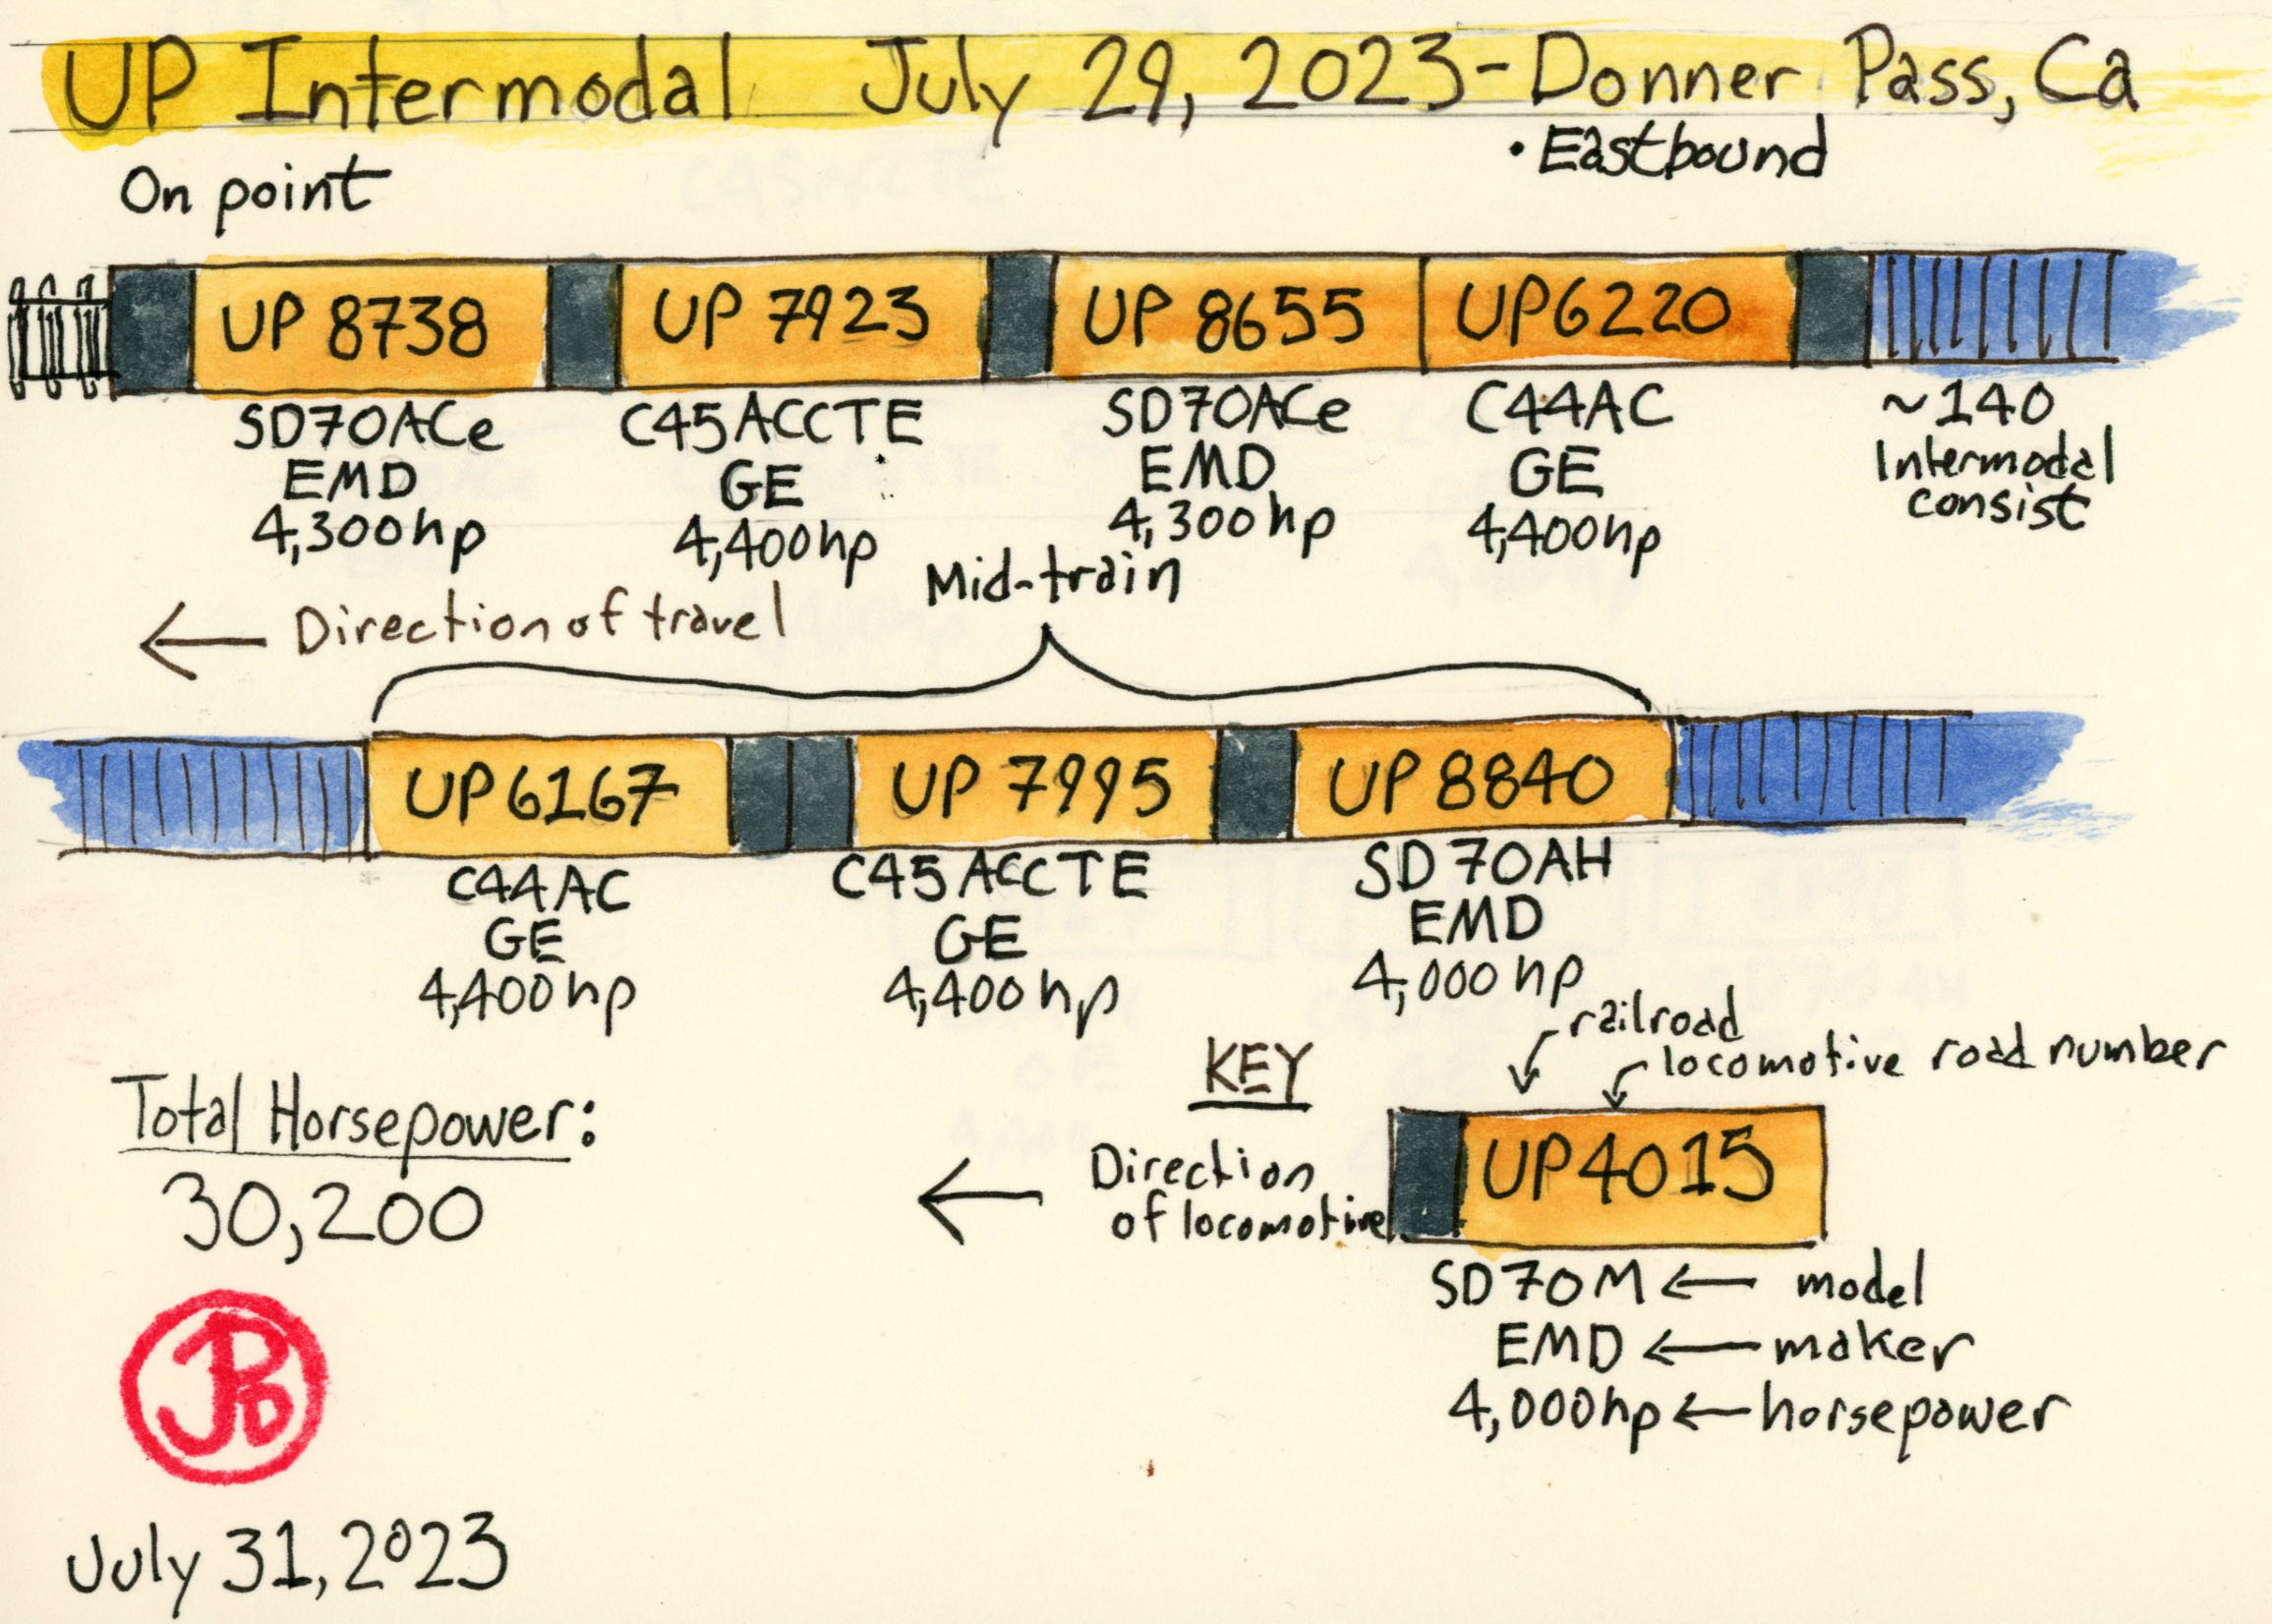 UP Intermodal July 29, 2023-Donner Pass, Ca
• Eastbound
On point
UP 8738
UP 7923
UP 8655
UP6220
SD70ACe
EMD
4,300hp
C45ACCTE
GE
4,400hp
SD70ACe
EMD
4,300hp
C44AC
GE
4,400hp
~140
Intermodal
consist
← Direction of travel
Mid-train
UP6167
UP 7995
UP 8840
C44AC
GE
4,400hp
C45ACCTE
GE
4,400hp
SD70AH
EMD
4,000hp
Total Horsepower:
30,200
KEY
railroad
locomotive road number
← Direction
of locomotive
UP4015
SD70M ← model
EMD ← maker
4,000hp ← horsepower
JPD
July 31, 2023